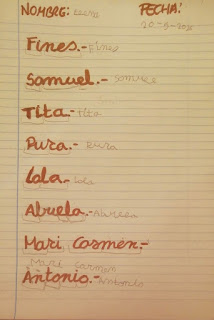 NOMBRE: FECHA:
Fines.- Fines
Samuel.- Samuel
Tita.- Tita
Pura.- Pura
Lola.- Lola
Abuela.- Abuela
Mari Carmen.-
Mari Carmen
Antonio.- Antonio